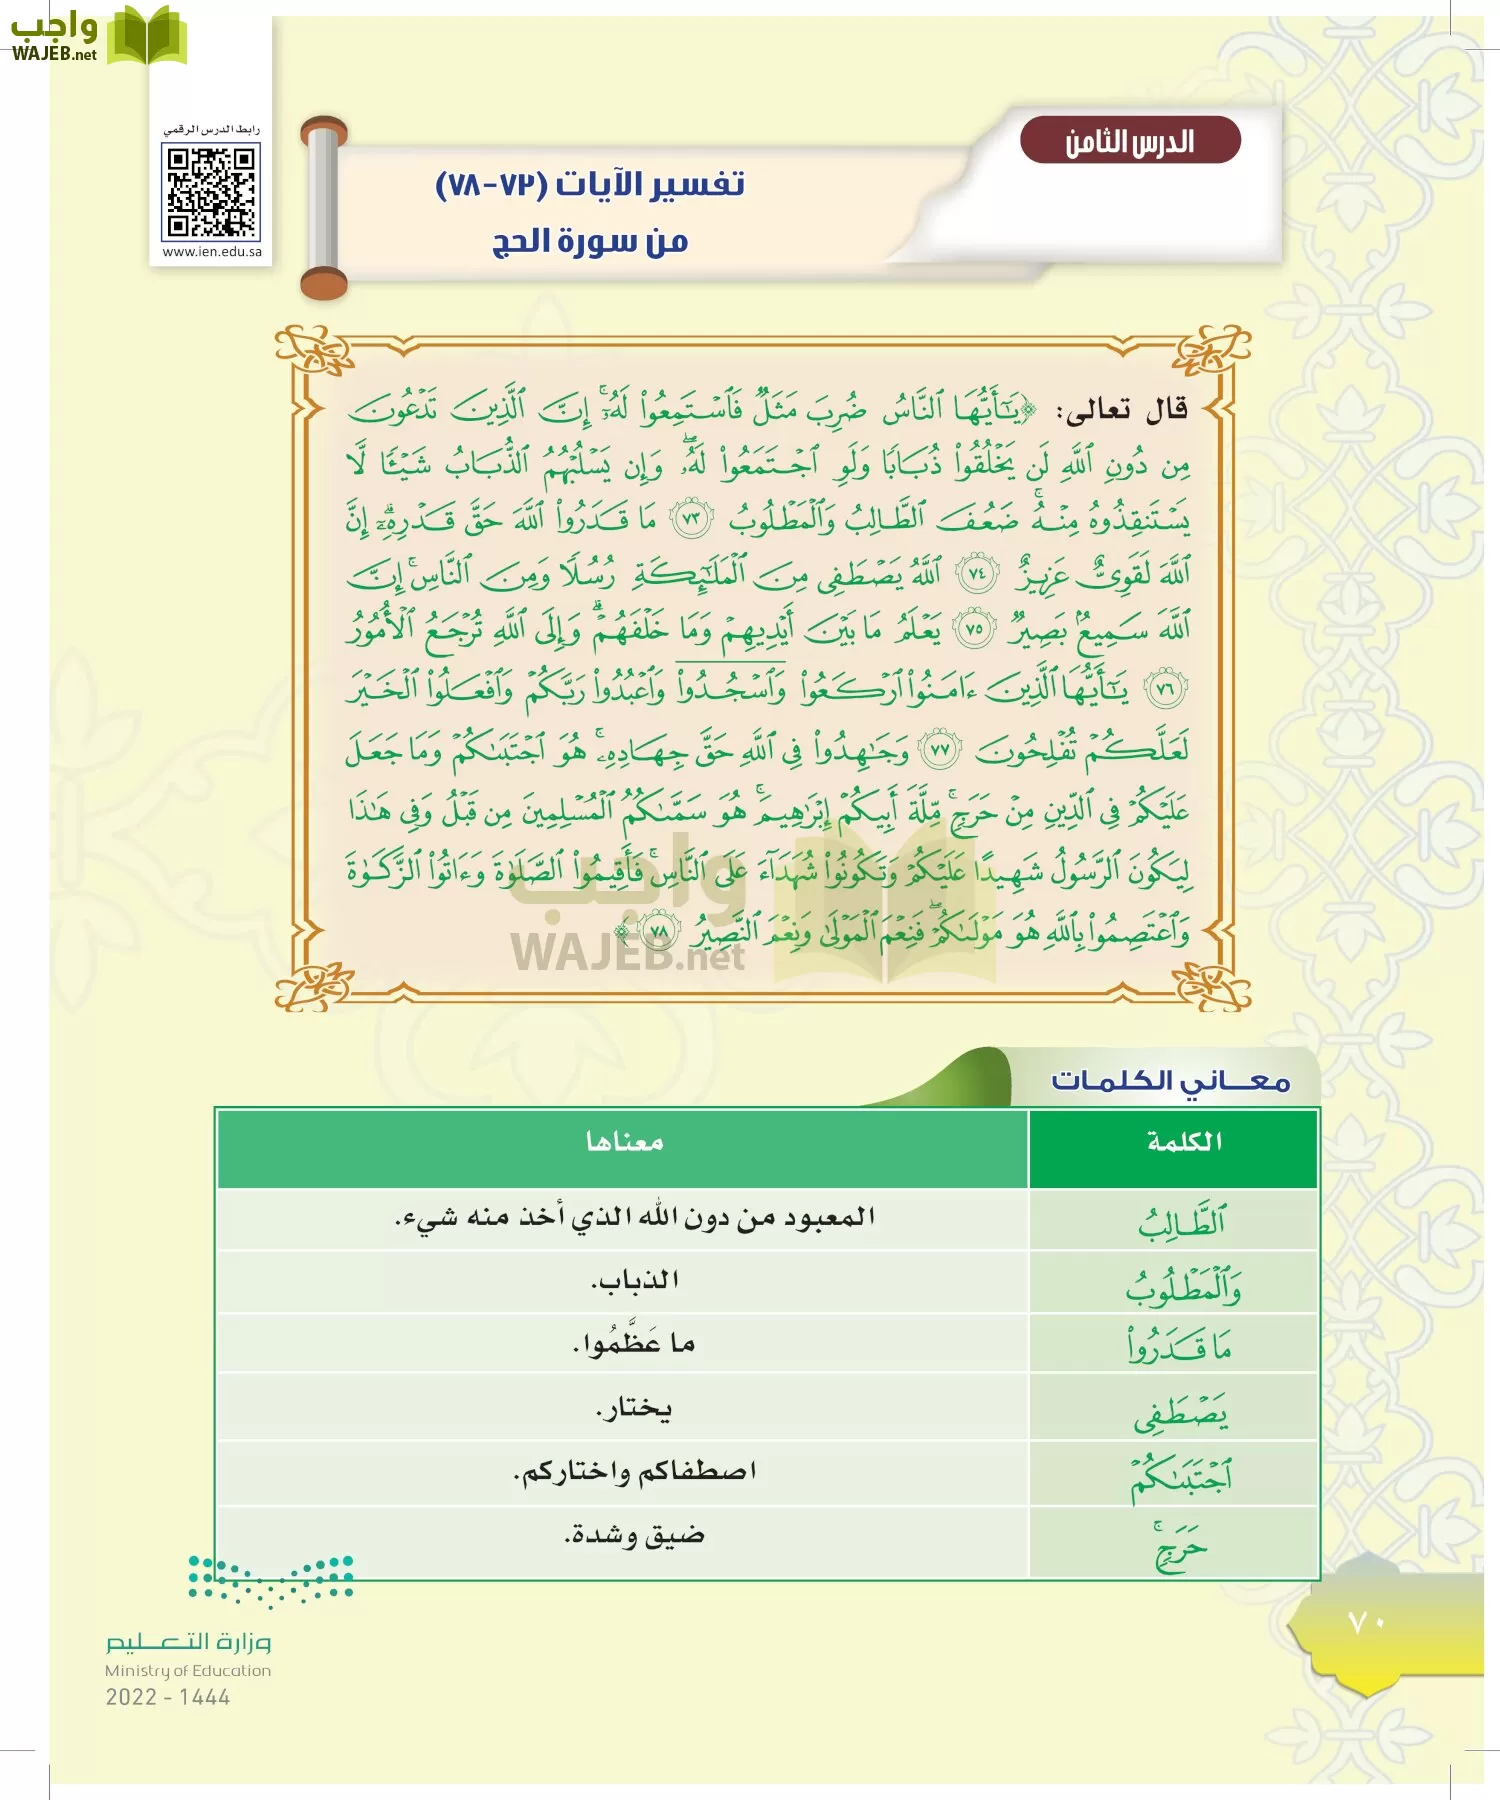 واجب
WAJEB.net
رابط الدرس الرقمي
www.ien.edu.sa
الدرس الثامن
تفسير الآيات (٧٣-٧٨)
من سورة الحج
قال تعالى: ﴿يَٰٓأَيُّهَا ٱلنَّاسُ ضُرِبَ مَثَلٞ فَٱسۡتَمِعُواْ لَهُۥٓۚ إِنَّ ٱلَّذِينَ تَدۡعُونَ
مِن دُونِ ٱللَّهِ لَن يَخۡلُقُواْ ذُبَابٗا وَلَوِ ٱجۡتَمَعُواْ لَهُۥۖ وَإِن يَسۡلُبۡهُمُ ٱلذُّبَابُ شَيۡـٔٗا لَّا
يَسۡتَنقِذُوهُ مِنۡهُۚ ضَعُفَ ٱلطَّالِبُ وَٱلۡمَطۡلُوبُ ٧٣ مَا قَدَرُواْ ٱللَّهَ حَقَّ قَدۡرِهِۦٓۗ إِنَّ
ٱللَّهَ لَقَوِيٌّ عَزِيزٌ ٧٤ ٱللَّهُ يَصۡطَفِي مِنَ ٱلۡمَلَٰٓئِكَةِ رُسُلٗا وَمِنَ ٱلنَّاسِۚ إِنَّ
ٱللَّهَ سَمِيعُۢ بَصِيرٞ ٧٥ يَعۡلَمُ مَا بَيۡنَ أَيۡدِيهِمۡ وَمَا خَلۡفَهُمۡۚ وَإِلَى ٱللَّهِ تُرۡجَعُ ٱلۡأُمُورُ
٧٦ يَٰٓأَيُّهَا ٱلَّذِينَ ءَامَنُواْ ٱرۡكَعُواْ وَٱسۡجُدُواْ وَٱعۡبُدُواْ رَبَّكُمۡ وَٱفۡعَلُواْ ٱلۡخَيۡرَ
لَعَلَّكُمۡ تُفۡلِحُونَ ٧٧ وَجَٰهِدُواْ فِي ٱللَّهِ حَقَّ جِهَادِهِۦۚ هُوَ ٱجۡتَبَىٰكُمۡ وَمَا جَعَلَ
عَلَيۡكُمۡ فِي ٱلدِّينِ مِنۡ حَرَجٖۚ مِّلَّةَ أَبِيكُمۡ إِبۡرَٰهِيمَۚ هُوَ سَمَّىٰكُمُ ٱلۡمُسۡلِمِينَ مِن قَبۡلُ وَفِي هَٰذَا
لِيَكُونَ ٱلرَّسُولُ شَهِيدًا عَلَيۡكُمۡ وَتَكُونُواْ شُهَدَآءَ عَلَى ٱلنَّاسِۚ فَأَقِيمُواْ ٱلصَّلَوٰةَ وَءَاتُواْ ٱلزَّكَوٰةَ
وَٱعۡتَصِمُواْ بِٱللَّهِ هُوَ مَوۡلَىٰكُمۡۖ فَنِعۡمَ ٱلۡمَوۡلَىٰ وَنِعۡمَ ٱلنَّصِيرُ ٧٨﴾
واجب
WAJEB.net
معاني الكلمات
الكلمة معناها
ٱلطَّالِبُ المعبود من دون الله الذي أخذ منه شيء.
وَٱلۡمَطۡلُوبُ الذباب.
مَا قَدَرُواْ ما عَظَّمُوا.
يَصۡطَفِي يختار.
ٱجۡتَبَىٰكُمۡ اصطفاكم واختاركم.
حَرَجٖۚ ضيق وشدة.
وزارة التعليم
Ministry of Education
2022 - 1444
٧٠